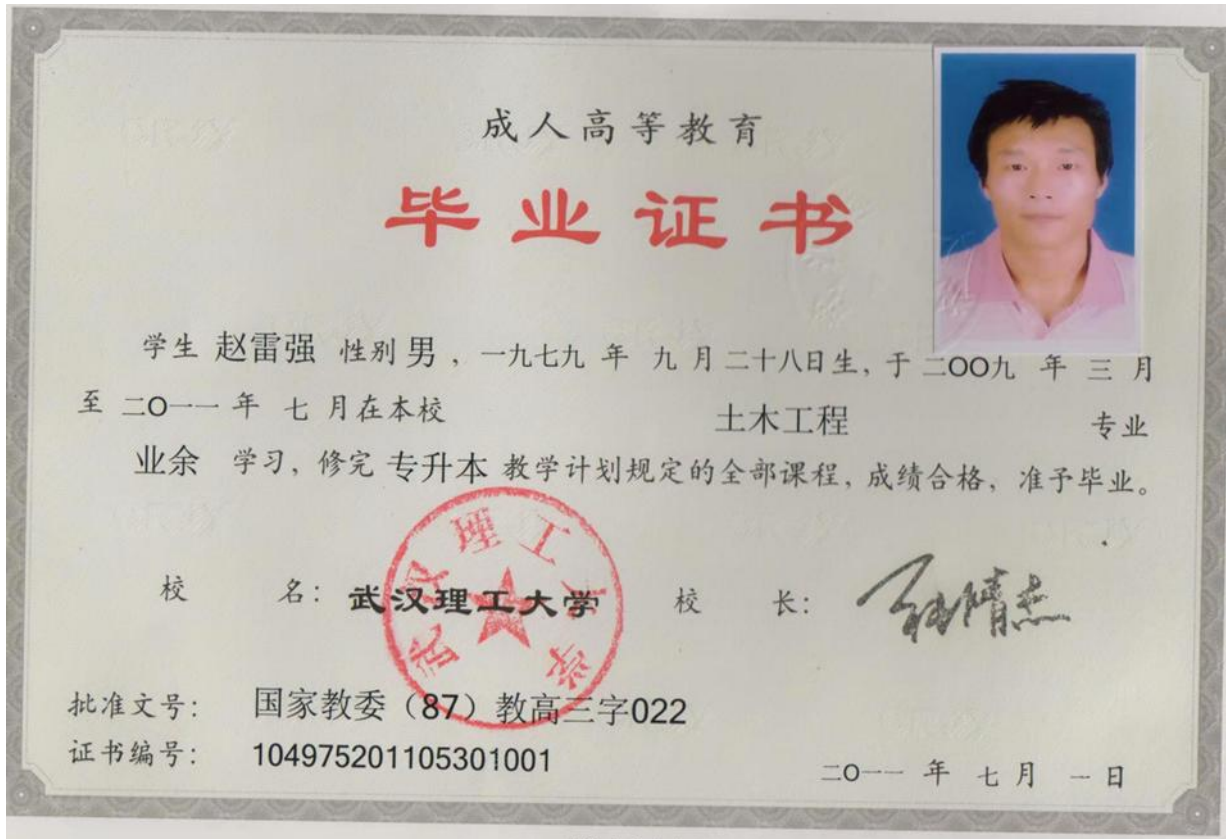 成人高等教育
毕业证书
学生 赵雷强 性别 男 ，一九七九 年 九 月 二十八日生，于 二OO九 年 三 月
至 二O一一 年 七 月在本校 土木工程 专业
业余 学习，修完 专升本 教学计划规定的全部课程，成绩合格，准予毕业。
武汉理工大学
校 名：武汉理工大学 校 长：
批准文号： 国家教委（87）教高三字022
证书编号： 104975201105301001
二O一一 年 七 月 一 日